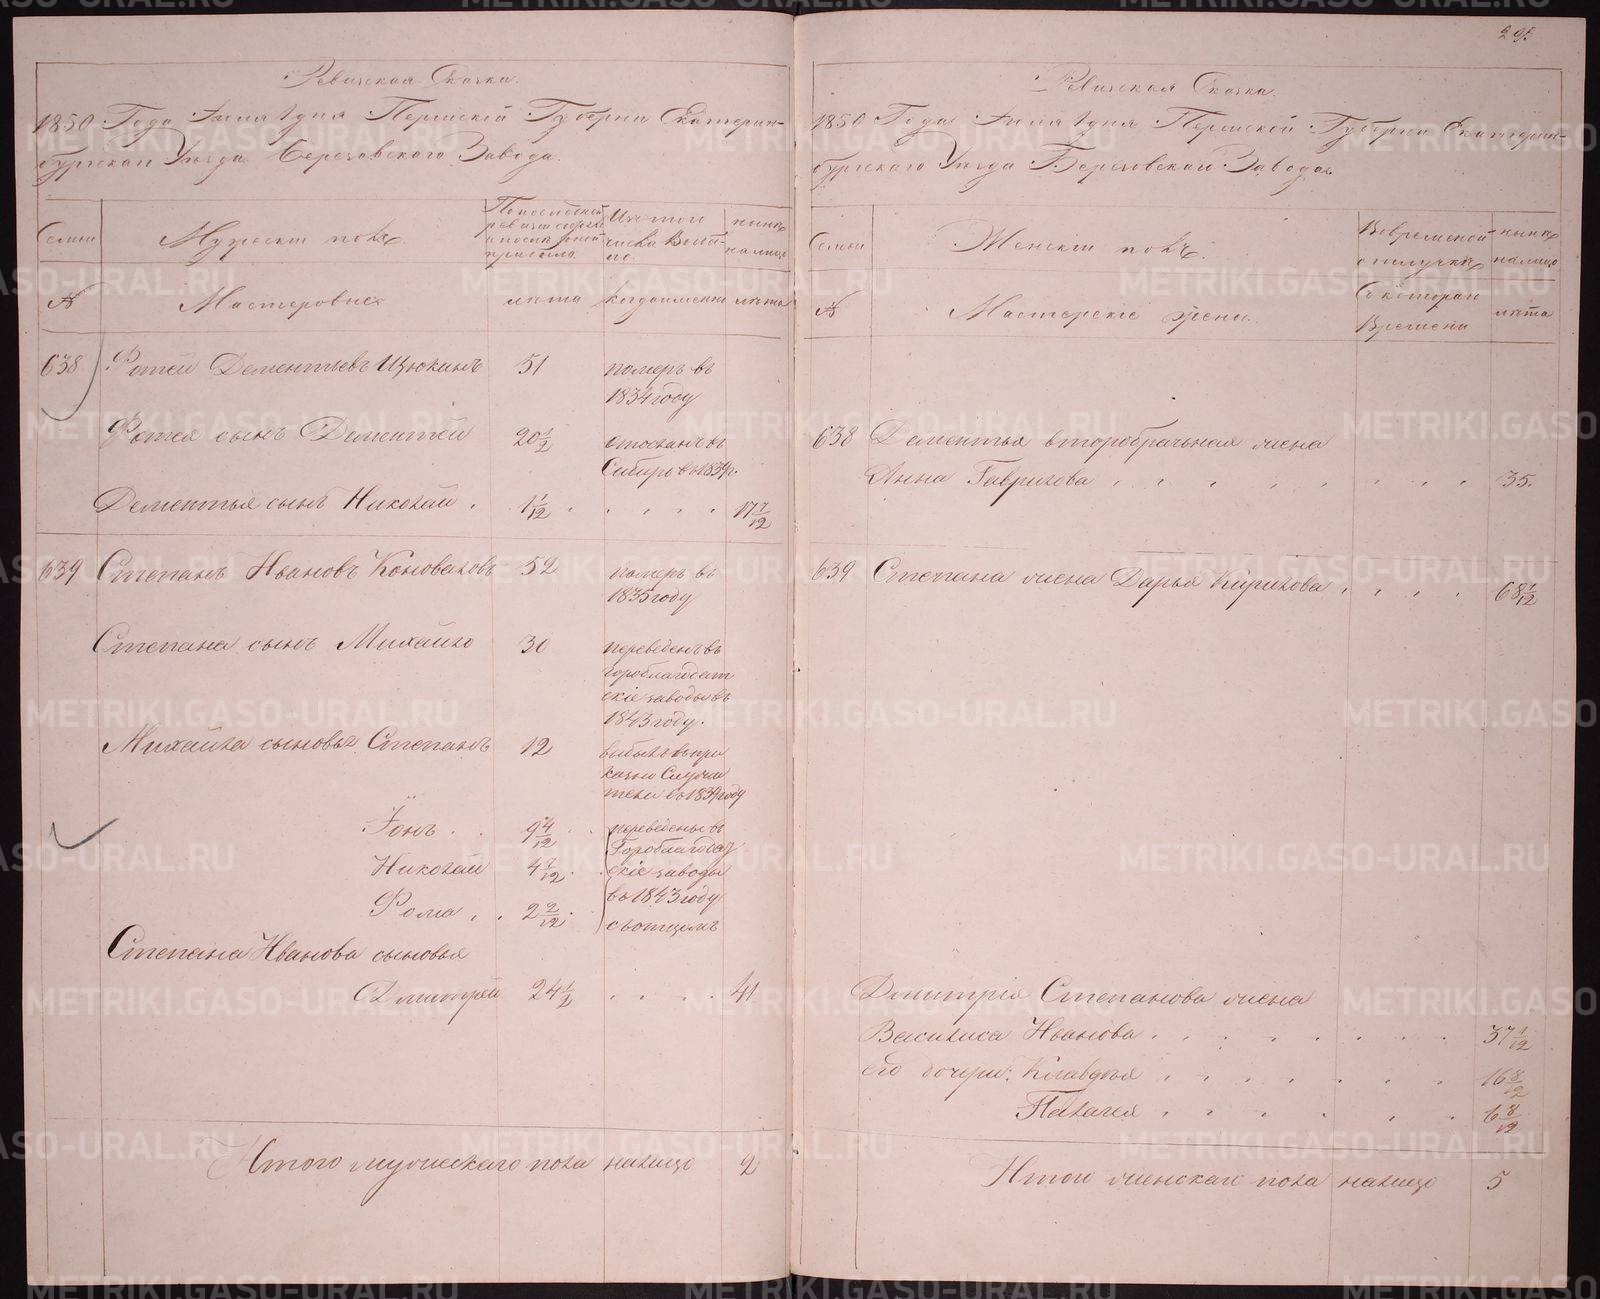 295
Ревижская Сказка.
1850 Года Іюля 1 дня Пермской Губерніи Екатерин-
бургскаго Уезда Березовскаго Завода.
Семьи
Мужескій полъ.
По последней
ревизіи состояло
и после оной
прибыло.
Изъ того
числа выбы-
ло.
ныне
на лицо
№
Мастеровые
лета
когда именно
лета
638
Фотей Дементьевъ Щюкинъ
51
померъ въ
1834 году
Фотея сынъ Дементей
20 1/2
отосланъ въ
Сибирь въ 1839 г.
Дементья сынъ Николай
1 1/12
17 7/12
639
Степанъ Ивановъ Коноваловъ
52
померъ въ
1835 году
Степана сынъ Михайло
30
переведенъ въ
Гороблагодат
скіе заводы въ
1843 году.
Михайла сыновья Степанъ
12
1839 году
Іонъ
9 4/12
переведены въ
Гороблагодат
скіе заводы
въ 1843 году
съ отцемъ
Николай
4 7/12
Фома
2 2/12
Степана Иванова сыновья
Дмитрей
24 1/2
41
Итого мужескаго пола налицо
2
Ревижская Сказка.
1850 Года Іюля 1 дня Пермской Губерніи Екатерин-
бургскаго Уезда Березовскаго Завода.
Семьи
Женскій полъ.
Во временной
отлучке
ныне
налицо
№
Мастерскіе жены.
Съ котораго
Времени
лета
638
Дементья второбрачная жена
Анна Гаврилова
35.
639
Степана жена Дарья Кирилова
68 7/12
Дмитрія Степанова жена
Василиса Иванова
37 1/12
его дочери: Клавдія
16 8/12
Палагея
6 8/12
Итого женскаго пола налицо
5
METRIKI.GASO-URAL.RU